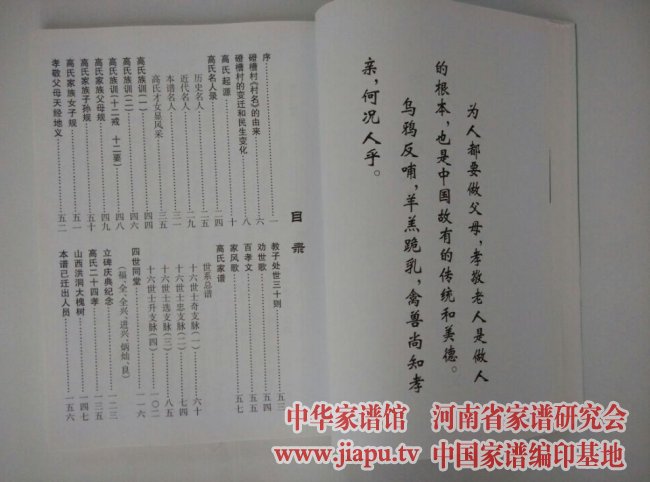 为人都要做父母，孝敬老人是做人
的根本，也是中国故有的传统和美德。
乌鸦反哺，羊羔跪乳，禽兽尚知孝
亲，何况人乎。
目录
序……一
磴槽村（村名）的由来……六
磴槽村的变迁和民生变化……八
高氏起源……十
高氏名人录
历史名人……二四
近代名人……二九
本谱名人……三一
高氏才女显风采……三五
高氏族训（一）……四四
高氏族训（二）……四六
高氏族训（十二戒 十二要）……四八
高氏家族父母规……四九
高氏家族子孙规……五十
高氏家族女子规……五一
孝敬父母天经地义……五二
教子处世三十则……五三
劝世歌……五四
百孝文……五五
家风歌……五七
高氏家谱
世系总谱
十六世士奇支脉（一）……六十
十六世士忠支脉（二）……七四
十六世士选支脉（三）……八五
十六世士升支脉（四）……一〇二
四世同堂……一一六
立碑庆典纪念……一二三
（福、全、全兴、进兴、炳灿、良）
高氏二十四孝……一三五
山西洪洞大槐树……一四七
本谱已迁出人员……一五六
中华家谱馆 河南省家谱研究会
www.jiapu.tv 中国家谱编印基地